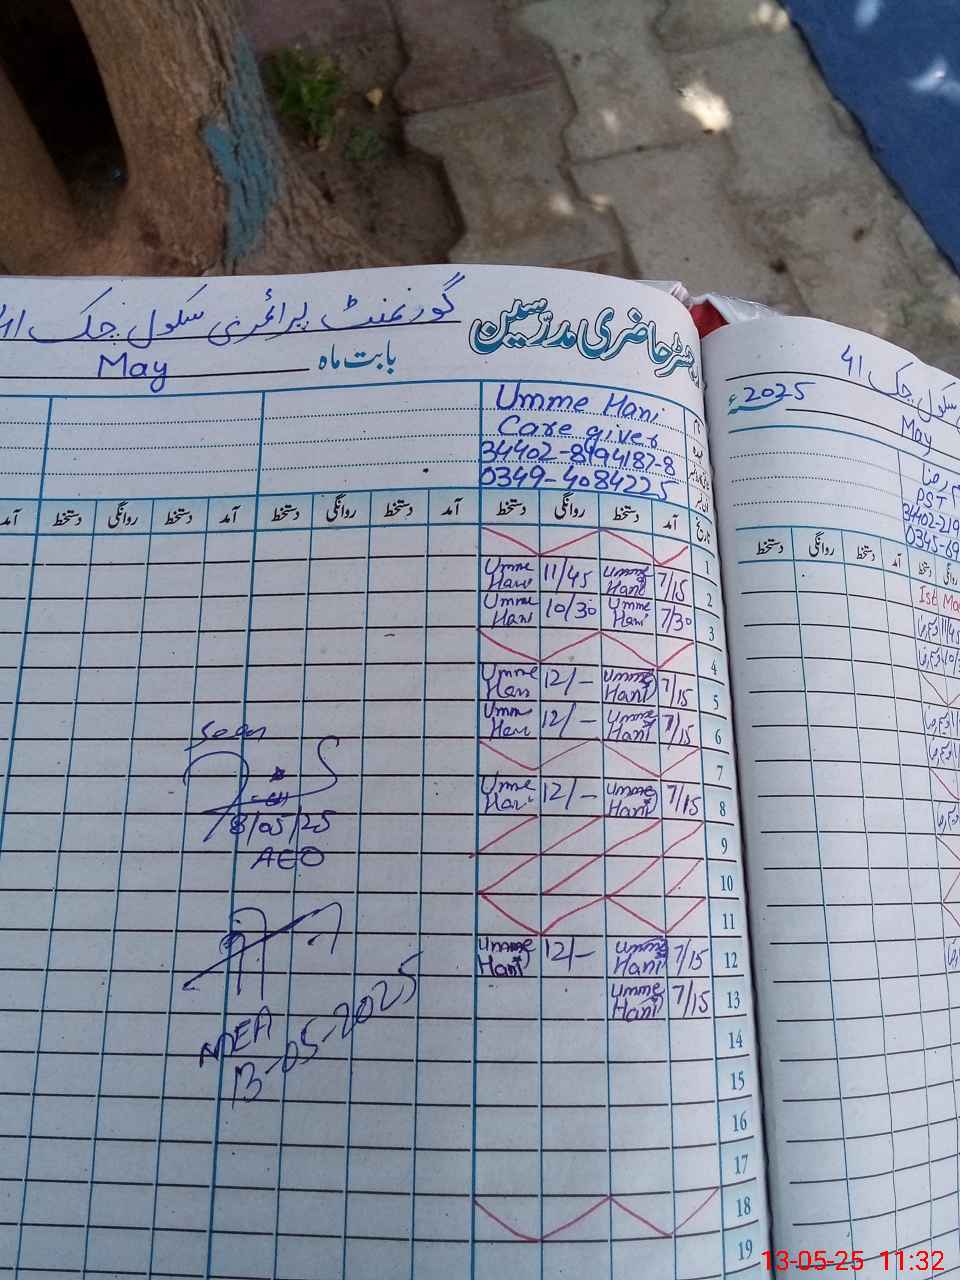 رجسٹر حاضری مدرسین
گورنمنٹ پرائمری سکول چک 41
بابت ماہ May
Umme Hani
Care giver
34402-8494187-8
0349-4084225
تاریخ آمد دستخط روانگی دستخط آمد دستخط روانگی دستخط آمد
1
2 7/15 Umme Hani 11/45 Umme Hani
3 7/30 Umme Hani 10/30 Umme Hani
4
5 7/15 Umme Hani 12/- Umme Hani
6 7/15 Umme Hani 12/- Umme Hani
7
8 7/15 Umme Hani 12/- Umme Hani
9
10
11
12 7/15 Umme Hani 12/- Umme Hani
13 7/15 Umme Hani
14
15
16
17
18
19
Seen
8/05/25
AEO
MEA
13-05-2025
سکول چک 41
2025ء
May
رضا
PST
34402-219
0345-69
دستخط روانگی دستخط آمد دستخط روانگی
Ist Ma
11/45
13-05-25 11:32